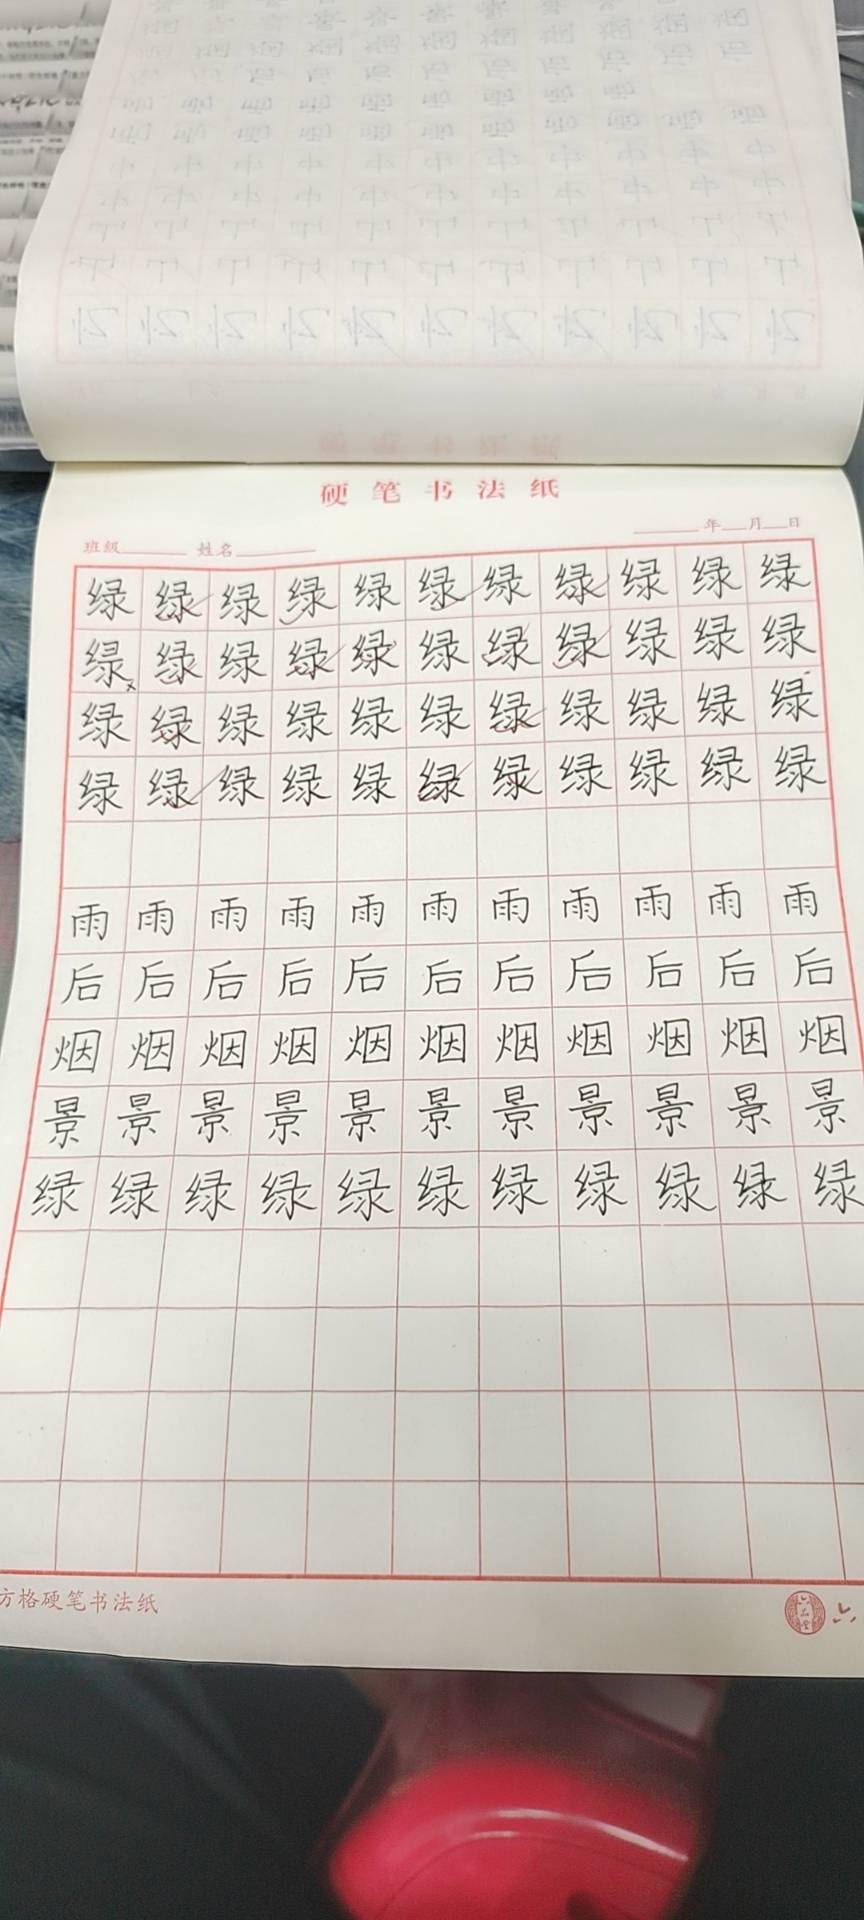 硬笔书法纸
年 月 日
班级 姓名
绿绿绿绿绿绿绿绿绿绿绿
绿绿绿绿绿绿绿绿绿绿绿
绿绿绿绿绿绿绿绿绿绿绿
绿绿绿绿绿绿绿绿绿绿绿
雨雨雨雨雨雨雨雨雨雨雨
后后后后后后后后后后后
烟烟烟烟烟烟烟烟烟烟烟
景景景景景景景景景景景
绿绿绿绿绿绿绿绿绿绿绿
方格硬笔书法纸
六品堂 六